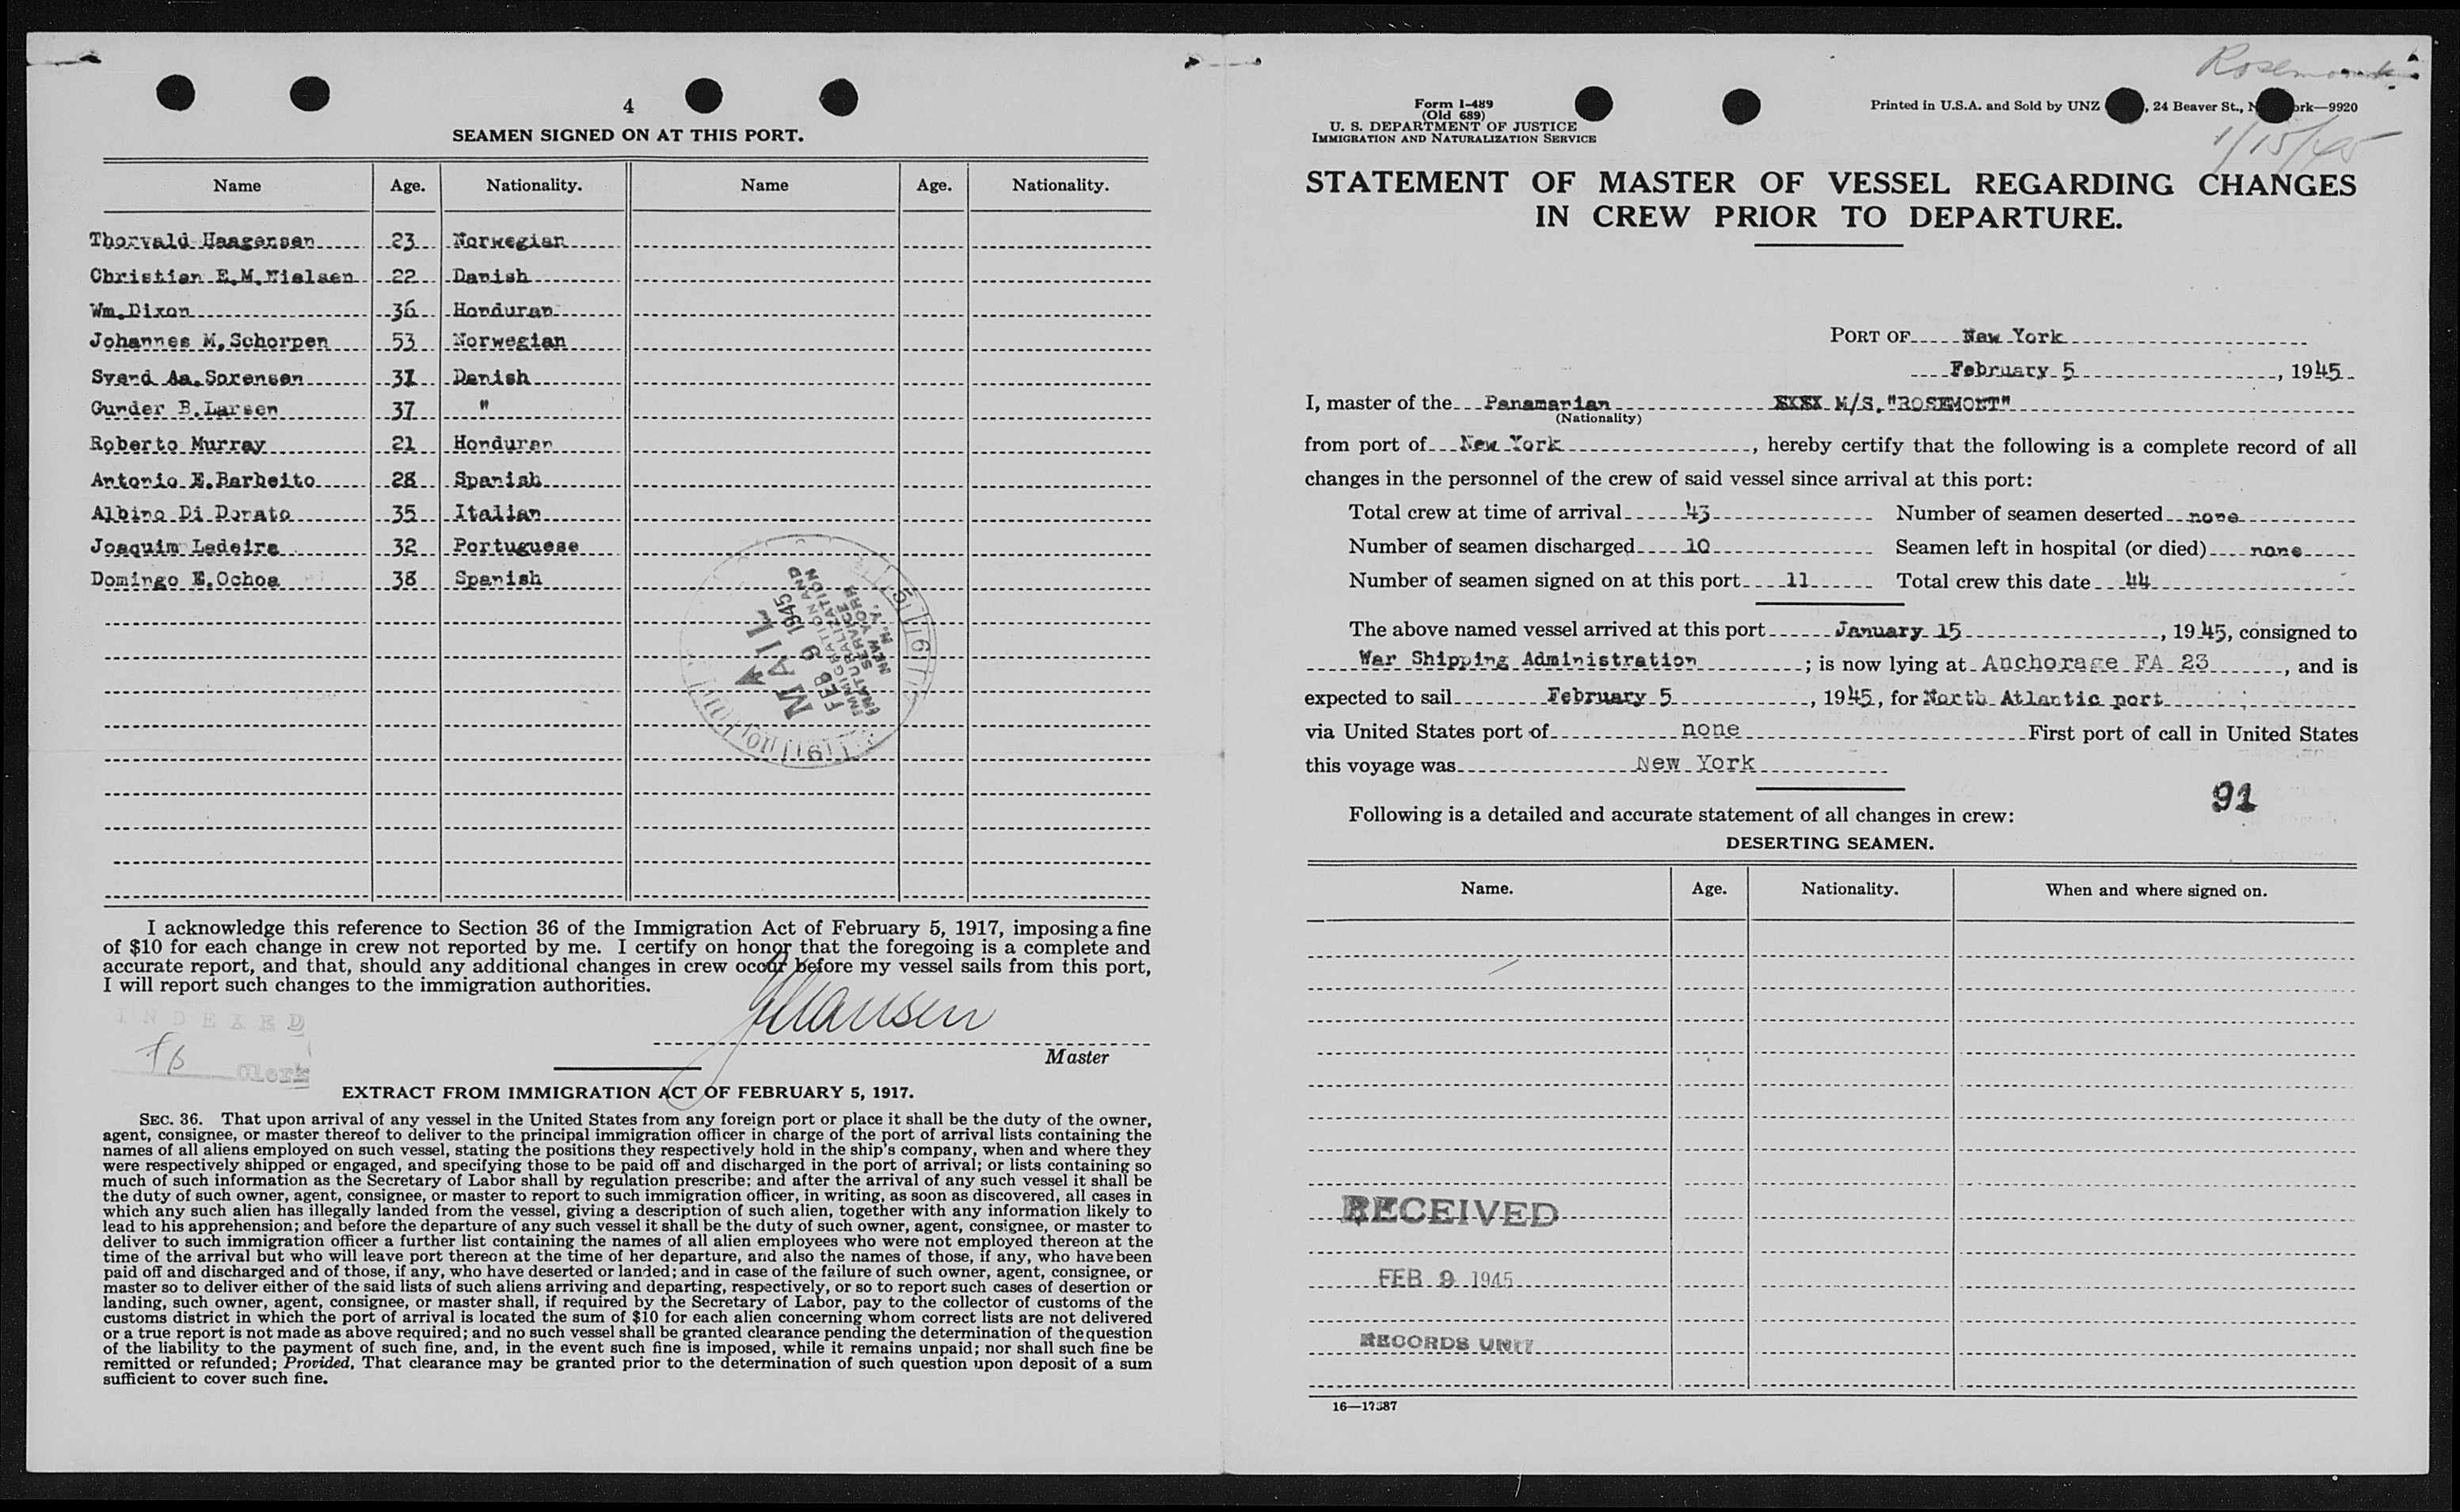 4
SEAMEN SIGNED ON AT THIS PORT.
Name Age. Nationality. Name Age. Nationality.
Thorvald Haagensen 23 Norwegian
Christian E.M.Nielsen 22 Danish
Wm.Dixon 36 Honduran
Johannes M.Schorpen 53 Norwegian
Svend Aa.Sorensen 31 Danish
Gunder B.Larsen 37 "
Roberto Murray 21 Honduran
Antonio E.Barbeito 28 Spanish
Albino Di Donato 35 Italian
Joaquim Ladeira 32 Portuguese
Domingo E.Ochoa 38 Spanish
MAIL
FEB 9 1945
IMMIGRATION AND
NATURALIZATION
SERVICE
NEW YORK
N.Y.
I acknowledge this reference to Section 36 of the Immigration Act of February 5, 1917, imposing a fine
of $10 for each change in crew not reported by me. I certify on honor that the foregoing is a complete and
accurate report, and that, should any additional changes in crew occur before my vessel sails from this port,
I will report such changes to the immigration authorities.
INDEXED
Clerk
Master
EXTRACT FROM IMMIGRATION ACT OF FEBRUARY 5, 1917.
SEC. 36. That upon arrival of any vessel in the United States from any foreign port or place it shall be the duty of the owner,
agent, consignee, or master thereof to deliver to the principal immigration officer in charge of the port of arrival lists containing the
names of all aliens employed on such vessel, stating the positions they respectively hold in the ship's company, when and where they
were respectively shipped or engaged, and specifying those to be paid off and discharged in the port of arrival; or lists containing so
much of such information as the Secretary of Labor shall by regulation prescribe; and after the arrival of any such vessel it shall be
the duty of such owner, agent, consignee, or master to report to such immigration officer, in writing, as soon as discovered, all cases in
which any such alien has illegally landed from the vessel, giving a description of such alien, together with any information likely to
lead to his apprehension; and before the departure of any such vessel it shall be the duty of such owner, agent, consignee, or master to
deliver to such immigration officer a further list containing the names of all alien employees who were not employed thereon at the
time of the arrival but who will leave port thereon at the time of her departure, and also the names of those, if any, who have been
paid off and discharged and of those, if any, who have deserted or landed; and in case of the failure of such owner, agent, consignee, or
master so to deliver either of the said lists of such aliens arriving and departing, respectively, or so to report such cases of desertion or
landing, such owner, agent, consignee, or master shall, if required by the Secretary of Labor, pay to the collector of customs of the
customs district in which the port of arrival is located the sum of $10 for each alien concerning whom correct lists are not delivered
or a true report is not made as above required; and no such vessel shall be granted clearance pending the determination of the question
of the liability to the payment of such fine, and, in the event such fine is imposed, while it remains unpaid; nor shall such fine be
remitted or refunded; Provided, That clearance may be granted prior to the determination of such question upon deposit of a sum
sufficient to cover such fine.
Form I-489
(Old 689)
U. S. DEPARTMENT OF JUSTICE
IMMIGRATION AND NATURALIZATION SERVICE
Printed in U.S.A. and Sold by UNZ , 24 Beaver St., —9920
1/15/45
STATEMENT OF MASTER OF VESSEL REGARDING CHANGES
IN CREW PRIOR TO DEPARTURE.
PORT OF New York
February 5, 1945
I, master of the Panamanian XXXX M/S."ROSEMONT"
(Nationality)
from port of New York, hereby certify that the following is a complete record of all
changes in the personnel of the crew of said vessel since arrival at this port:
Total crew at time of arrival 43 Number of seamen deserted none
Number of seamen discharged 10 Seamen left in hospital (or died) none
Number of seamen signed on at this port 11 Total crew this date 44
The above named vessel arrived at this port January 15, 1945, consigned to
War Shipping Administration; is now lying at Anchorage FA 23, and is
expected to sail February 5, 1945, for North Atlantic port
via United States port of none First port of call in United States
this voyage was New York
91
Following is a detailed and accurate statement of all changes in crew:
DESERTING SEAMEN.
Name. Age. Nationality. When and where signed on.
RECEIVED
FEB 9 1945
RECORDS UNIT
16—17387